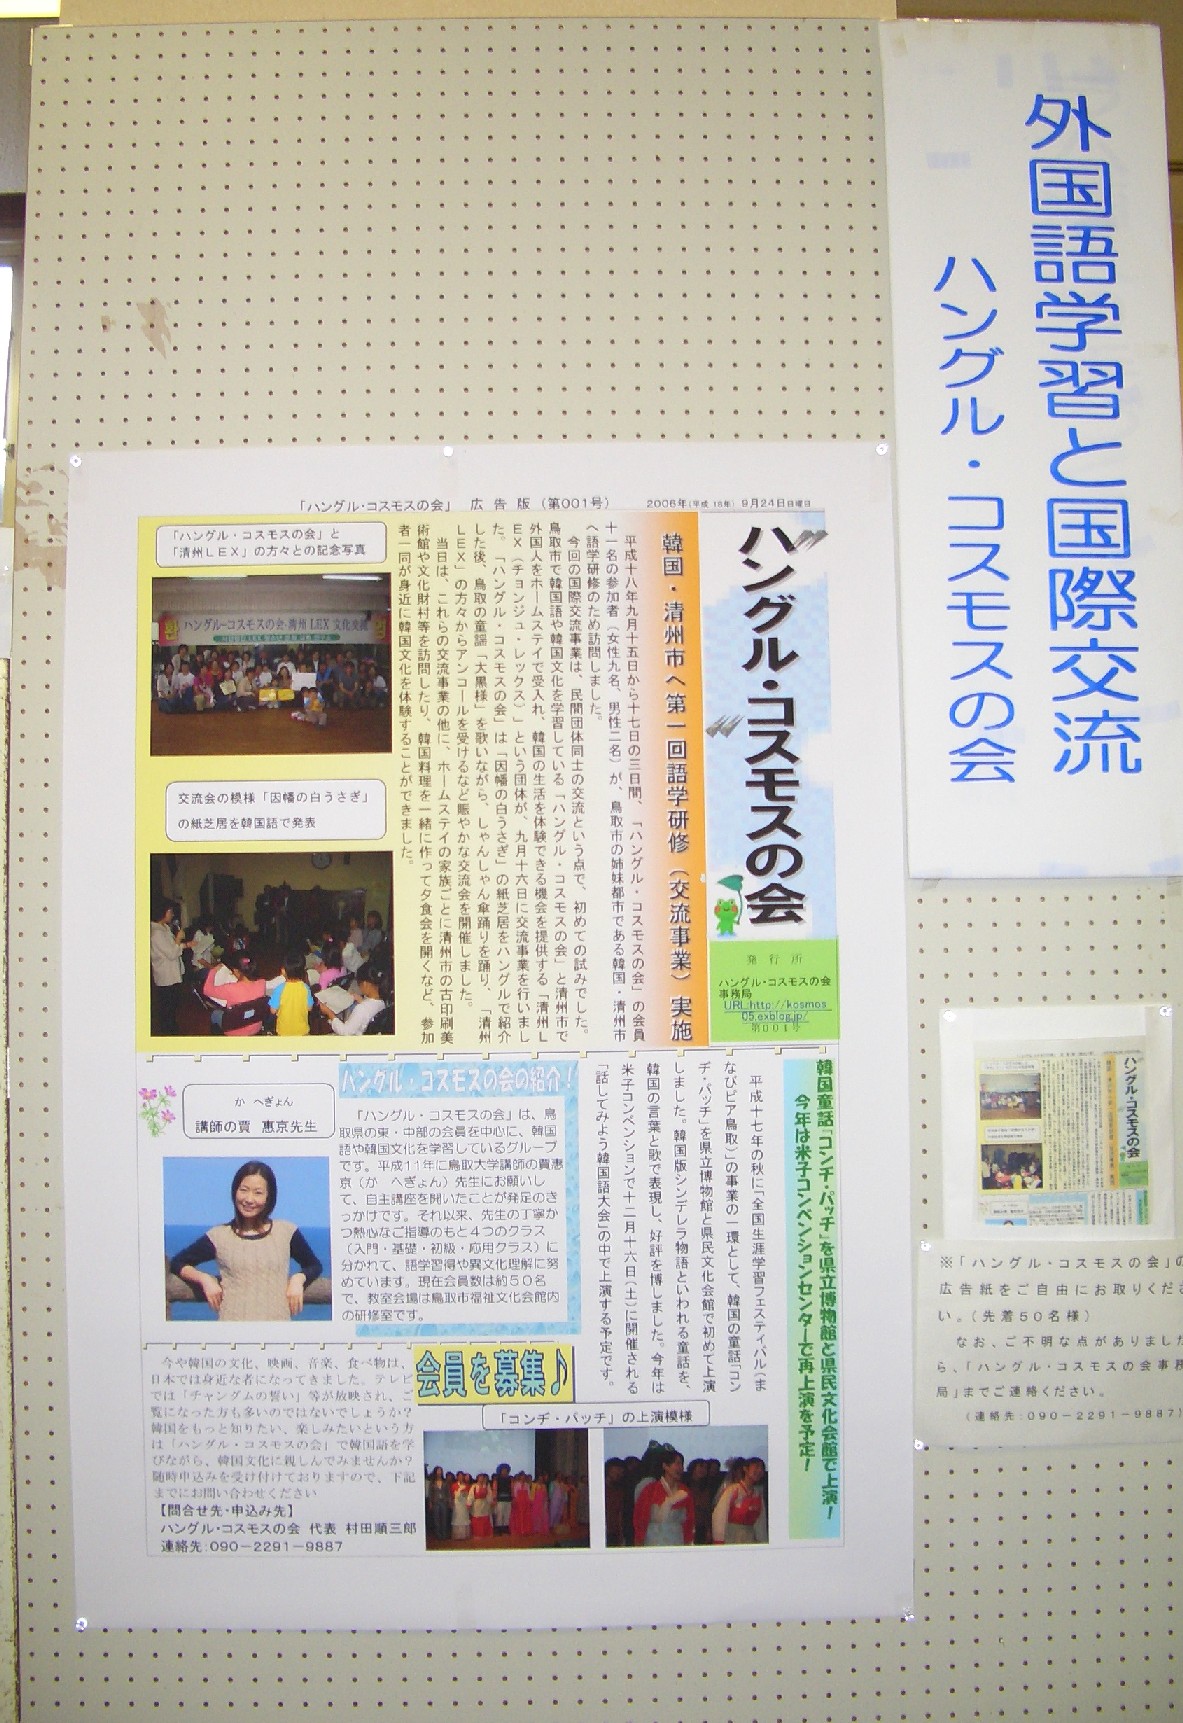 外国語学習と国際交流
ハングル・コスモスの会
「ハングル・コスモスの会」 広告版（第001号） 2006年(平成18年)9月24日日曜日
ハングル・コスモスの会
発行所
ハングル・コスモスの会
事務局
URL http://kosmos
05.exblog.jp/
第001号
韓国・清州市へ第一回語学研修（交流事業）実施
平成十八年九月十五日から十七日の三日間、「ハングル・コスモスの会」の会員
十一名の参加者（女性九名、男性二名）が、鳥取市の姉妹都市である韓国・清州市
へ語学研修のため訪問しました。
今回の国際交流事業は、民間団体同士の交流という点で、初めての試みでした。
鳥取市で韓国語や韓国文化を学習している「ハングル・コスモスの会」と清州市で
外国人をホームステイで受入れ、韓国の生活を体験できる機会を提供する「清州L
EX（チョンジュ・レックス）」という団体が、九月十六日に交流事業を行いまし
た。「ハングル・コスモスの会」は「因幡の白うさぎ」の紙芝居をハングルで紹介
した後、鳥取の童謡「大黒様」を歌いながら、しゃんしゃん傘踊りを踊り、「清州
LEX」の方々からアンコールを受けるなど賑やかな交流会を開催しました。
当日は、これらの交流事業の他に、ホームステイの家族ごとに清州市の古印刷美
術館や文化財村等を訪問したり、韓国料理を一緒に作って夕食会を開くなど、参加
者一同が身近に韓国文化を体験することができました。
「ハングル・コスモスの会」と
「清州LEX」の方々との記念写真
ハングルーコスモスの会・清州 LEX 文化交流
交流会の模様「因幡の白うさぎ」
の紙芝居を韓国語で発表
韓国童話『コンヂ・パッチ』を県立博物館と県民文化会館で上演！
今年は米子コンベンションセンターで再上演を予定！
平成十七年の秋に「全国生涯学習フェスティバル（ま
なびピア鳥取）」の事業の一環として、韓国の童話「コン
ヂ・パッチ」を県立博物館と県民文化会館で初めて上演
しました。韓国版シンデレラ物語といわれる童話を、
韓国の言葉と歌で表現し、好評を博しました。今年は
米子コンベンションで十二月十六日（土）に開催される
「話してみよう韓国語大会」の中で上演する予定です。
ハングル・コスモスの会の紹介！
「ハングル・コスモスの会」は、鳥
取県の東・中部の会員を中心に、韓国
語や韓国文化を学習しているグループ
です。平成11年に鳥取大学講師の賈恵
京（か へぎょん）先生にお願いし
て、自主講座を開いたことが発足のき
っかけです。それ以来、先生の丁寧か
つ熱心なご指導のもと4つのクラス
（入門・基礎・初級・応用クラス）に
分かれて、語学習得や異文化理解に努
めています。現在会員数は約50名
で、教室会場は鳥取市福祉文化会館内
の研修室です。
か へぎょん
講師の賈 恵京先生
会員を募集♪
今や韓国の文化、映画、音楽、食べ物は、
日本では身近な者になってきました。テレビ
では「チャングムの誓い」等が放映され、ご
覧になった方も多いのではないでしょうか？
韓国をもっと知りたい、楽しみたいという方
は「ハングル・コスモスの会」で韓国語を学
びながら、韓国文化に親しんでみませんか？
随時申込みを受け付けておりますので、下記
までにお問い合わせください
【問合せ先・申込み先】
ハングル・コスモスの会 代表 村田順三郎
連絡先：090－2291－9887
「コンヂ・パッチ」の上演模様
ハングル・コスモスの会
※「ハングル・コスモスの会」の
広告紙をご自由にお取りくださ
い。（先着50名様）
なお、ご不明な点がありました
ら、「ハングル・コスモスの会事務
局」までご連絡ください。
（連絡先：090－2291－9887）